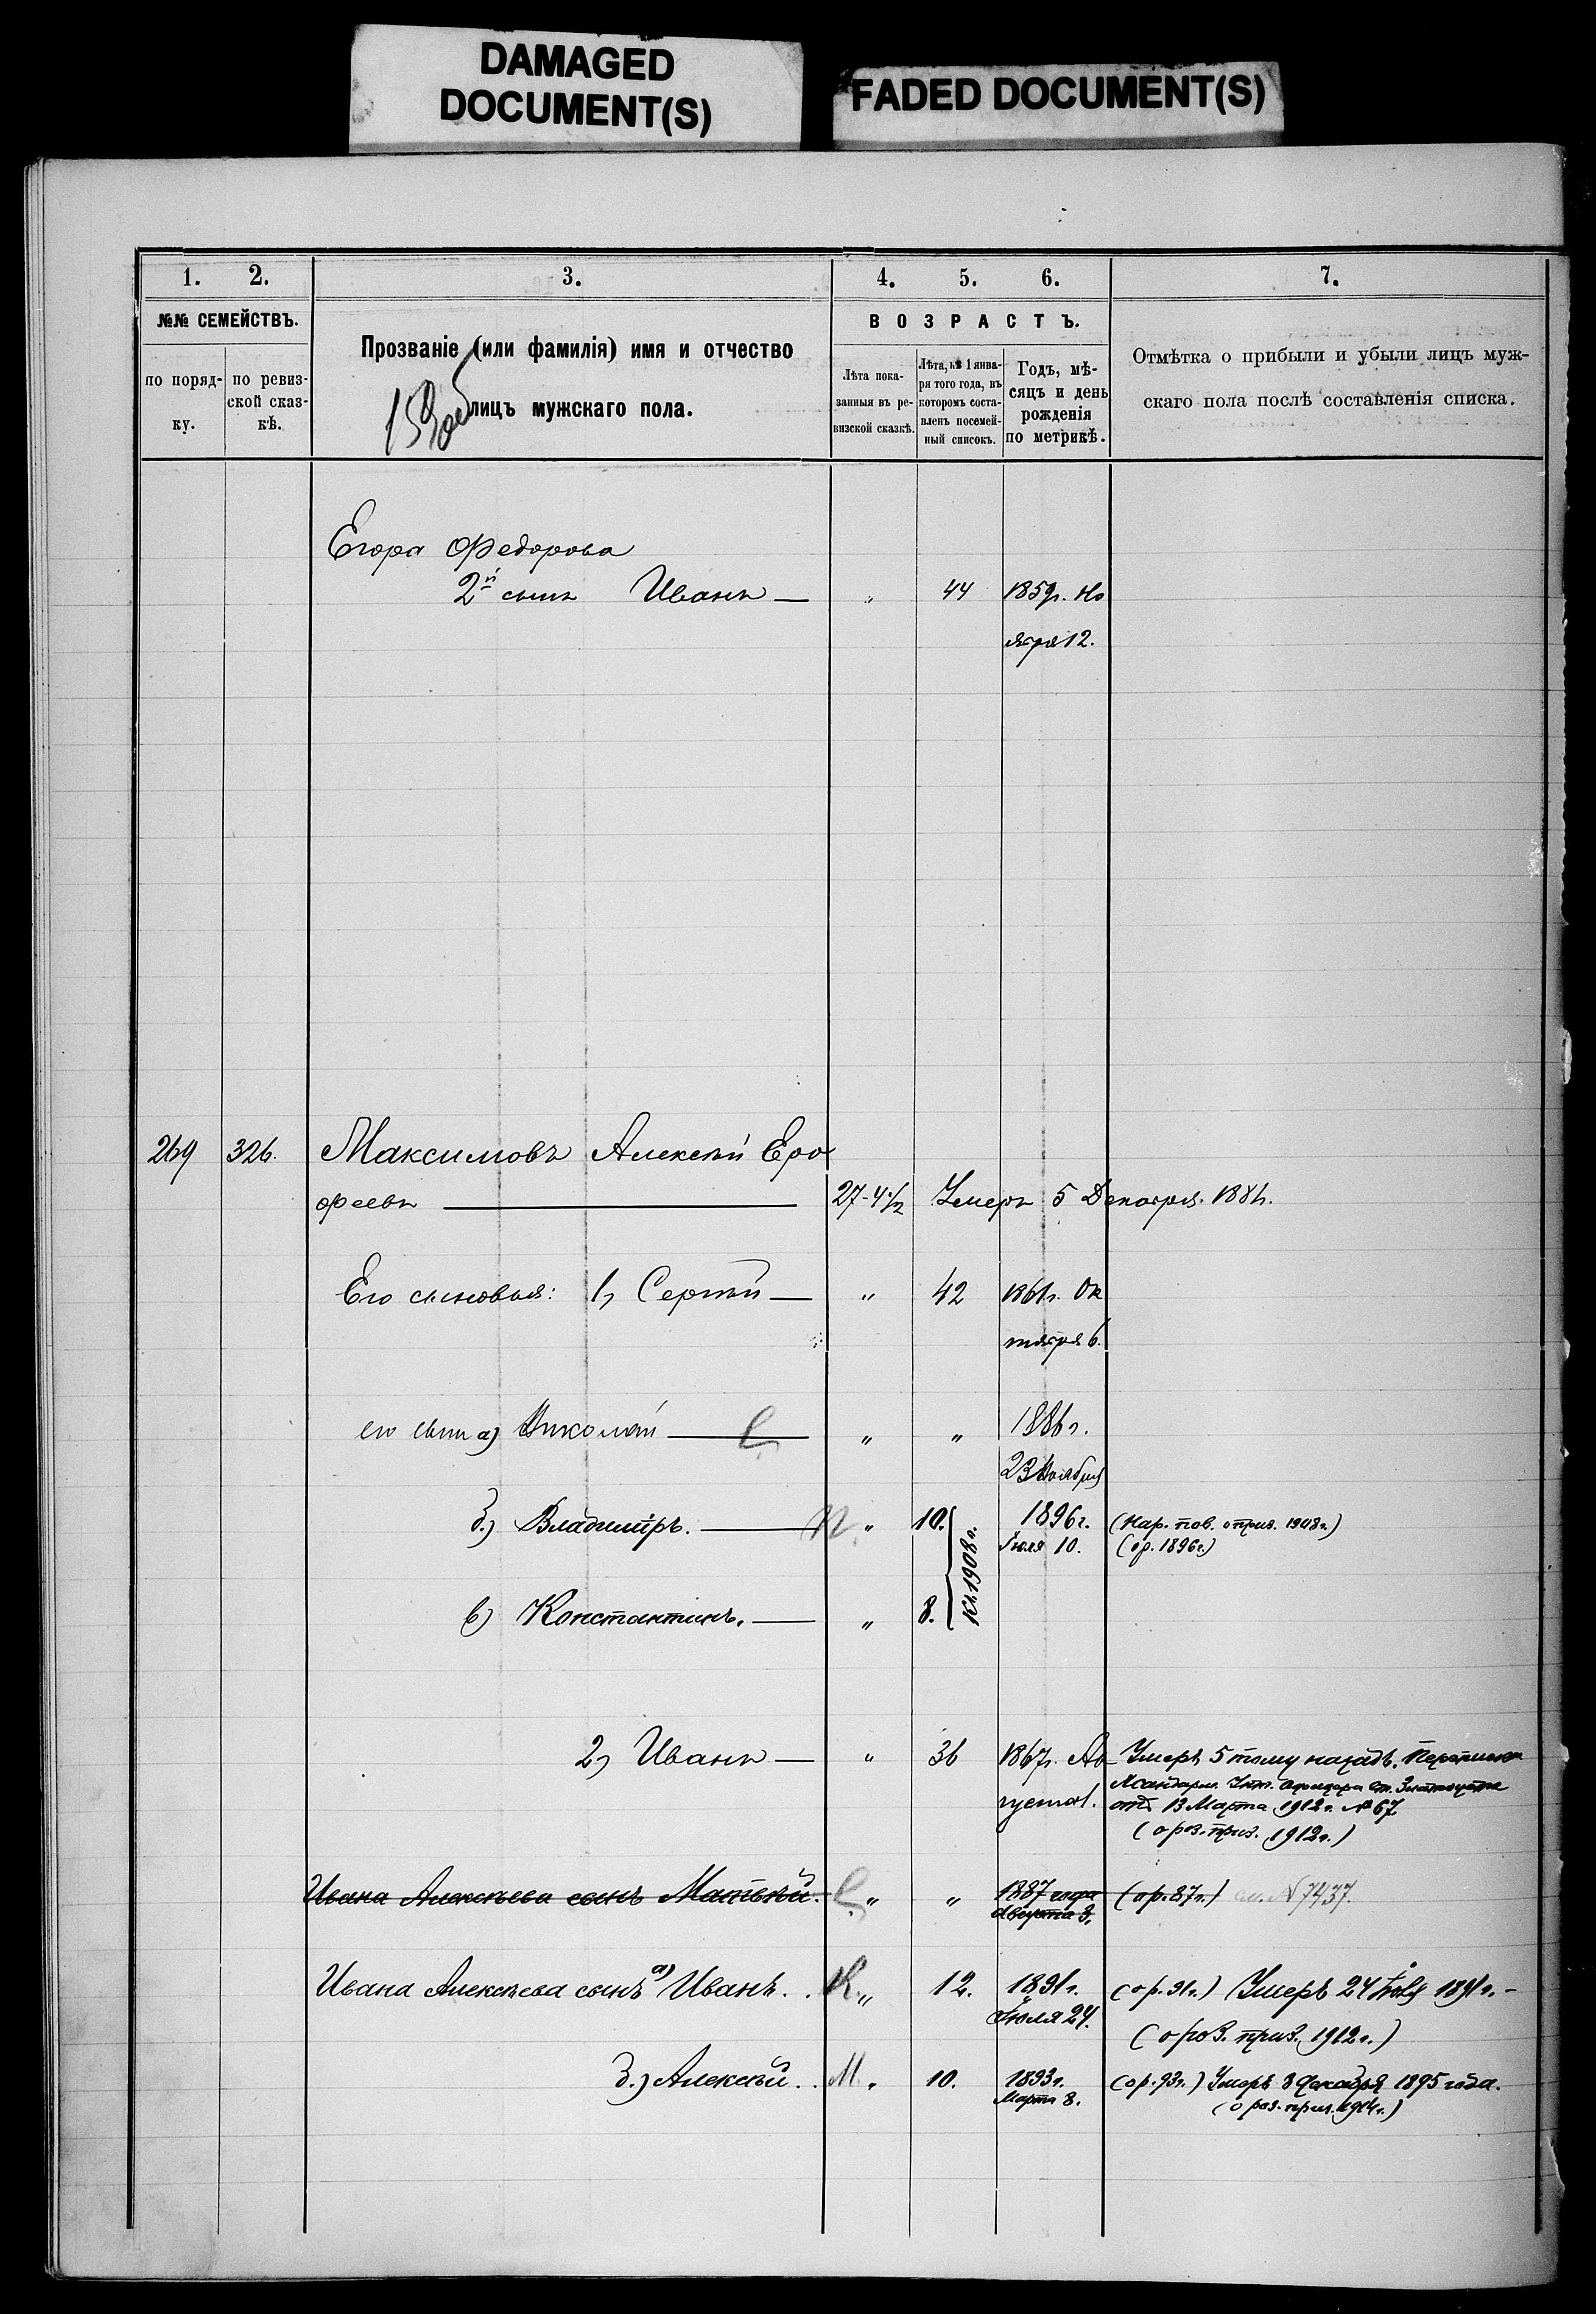 DAMAGED
DOCUMENT(S)
FADED DOCUMENT(S)
1. 2. 3. 4. 5. 6. 7.
№№ СЕМЕЙСТВЪ.
по поряд-
ку.
по ревиз-
ской сказ-
кѣ.
Прозваніе (или фамилія) имя и отчество
лицъ мужскаго пола.
ВОЗРАСТЪ.
Лѣта пока-
занныя въ ре-
визской сказкѣ.
Лѣта, къ 1 янва-
ря того года, въ
которомъ соста-
вленъ посемей-
ный списокъ.
Годъ, мѣ-
сяцъ и день
рожденія
по метрикѣ.
Отмѣтка о прибыли и убыли лицъ муж-
скаго пола послѣ составленія списка.
Егора Федорова
2й сынъ Иванъ — „ 44 1859г. Но
ября 12.
269 326. Максимовъ Алексѣй Еро
феевъ — 27-4/12 Умеръ 5 Декабря 1881г.
Его сыновья: 1, Сергѣй — „ 42 1861г. Ок
тября 6.
его сын а) Николай — „ „ 1886г.
23 Ноября
б.) Владиміръ. — „ 10. 1896г. (Нар. пов. о приз. 1908г.)
Іюля 10. (ор. 1896г.)
Къ 1908г.
в) Константинъ. — „ 8.
2, Иванъ — „ 36 1867г. Ав Умеръ 5 тому назадъ. Переписка
Жандарм. Унт. Офицера ст. Златоуста
густа 1. отъ 13 Марта 1912г. № 67.
(о роз. приз. 1912г.)
Ивана Алексѣева сынъ Матвѣй. „ „ 1887 года (ор. 87г.) см. № 7437.
Августа 3.
Ивана Алексѣева сынъ а) Иванъ. К „ 12. 1891г. (ор. 91г.) Умеръ 24 1891г. -
Іюля 24.
(о роз. приз. 1912г.)
б.) Алексѣй. М. „ 10. 1893г. (ор. 93г.) Умеръ 8 декабря 1895 года.
Марта 8. (о роз. приз. 1914г.)